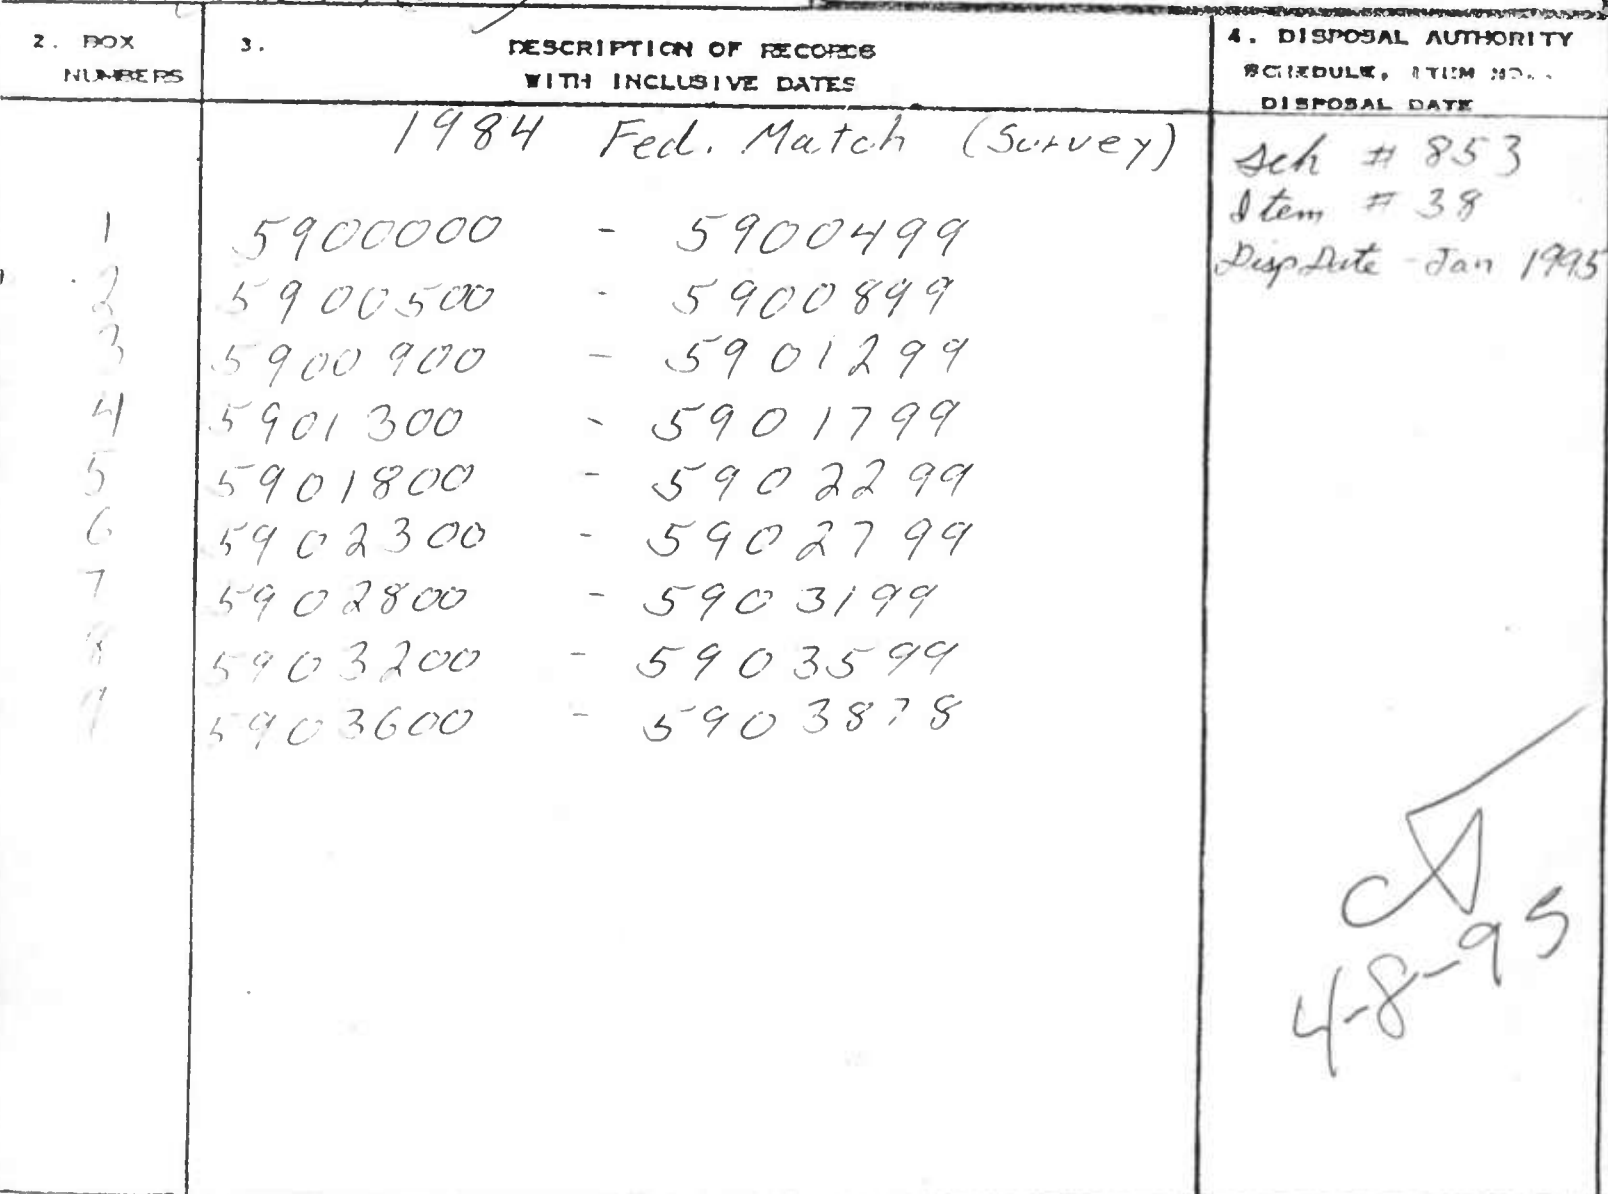 2. BOX NUMBERS
3. DESCRIPTION OF RECORDS
WITH INCLUSIVE DATES
4. DISPOSAL AUTHORITY
SCHEDULE, ITEM NO.,
DISPOSAL DATE
1984 Fed. Match (Survey)
Sch # 853
Item # 38
Disp Date - Jan 1995
1 5900000 - 5900499
2 5900500 - 5900899
3 5900900 - 5901299
4 5901300 - 5901799
5 5901800 - 5902299
6 5902300 - 5902799
7 5902800 - 5903199
8 5903200 - 5903599
9 5903600 - 5903878
4-8-95